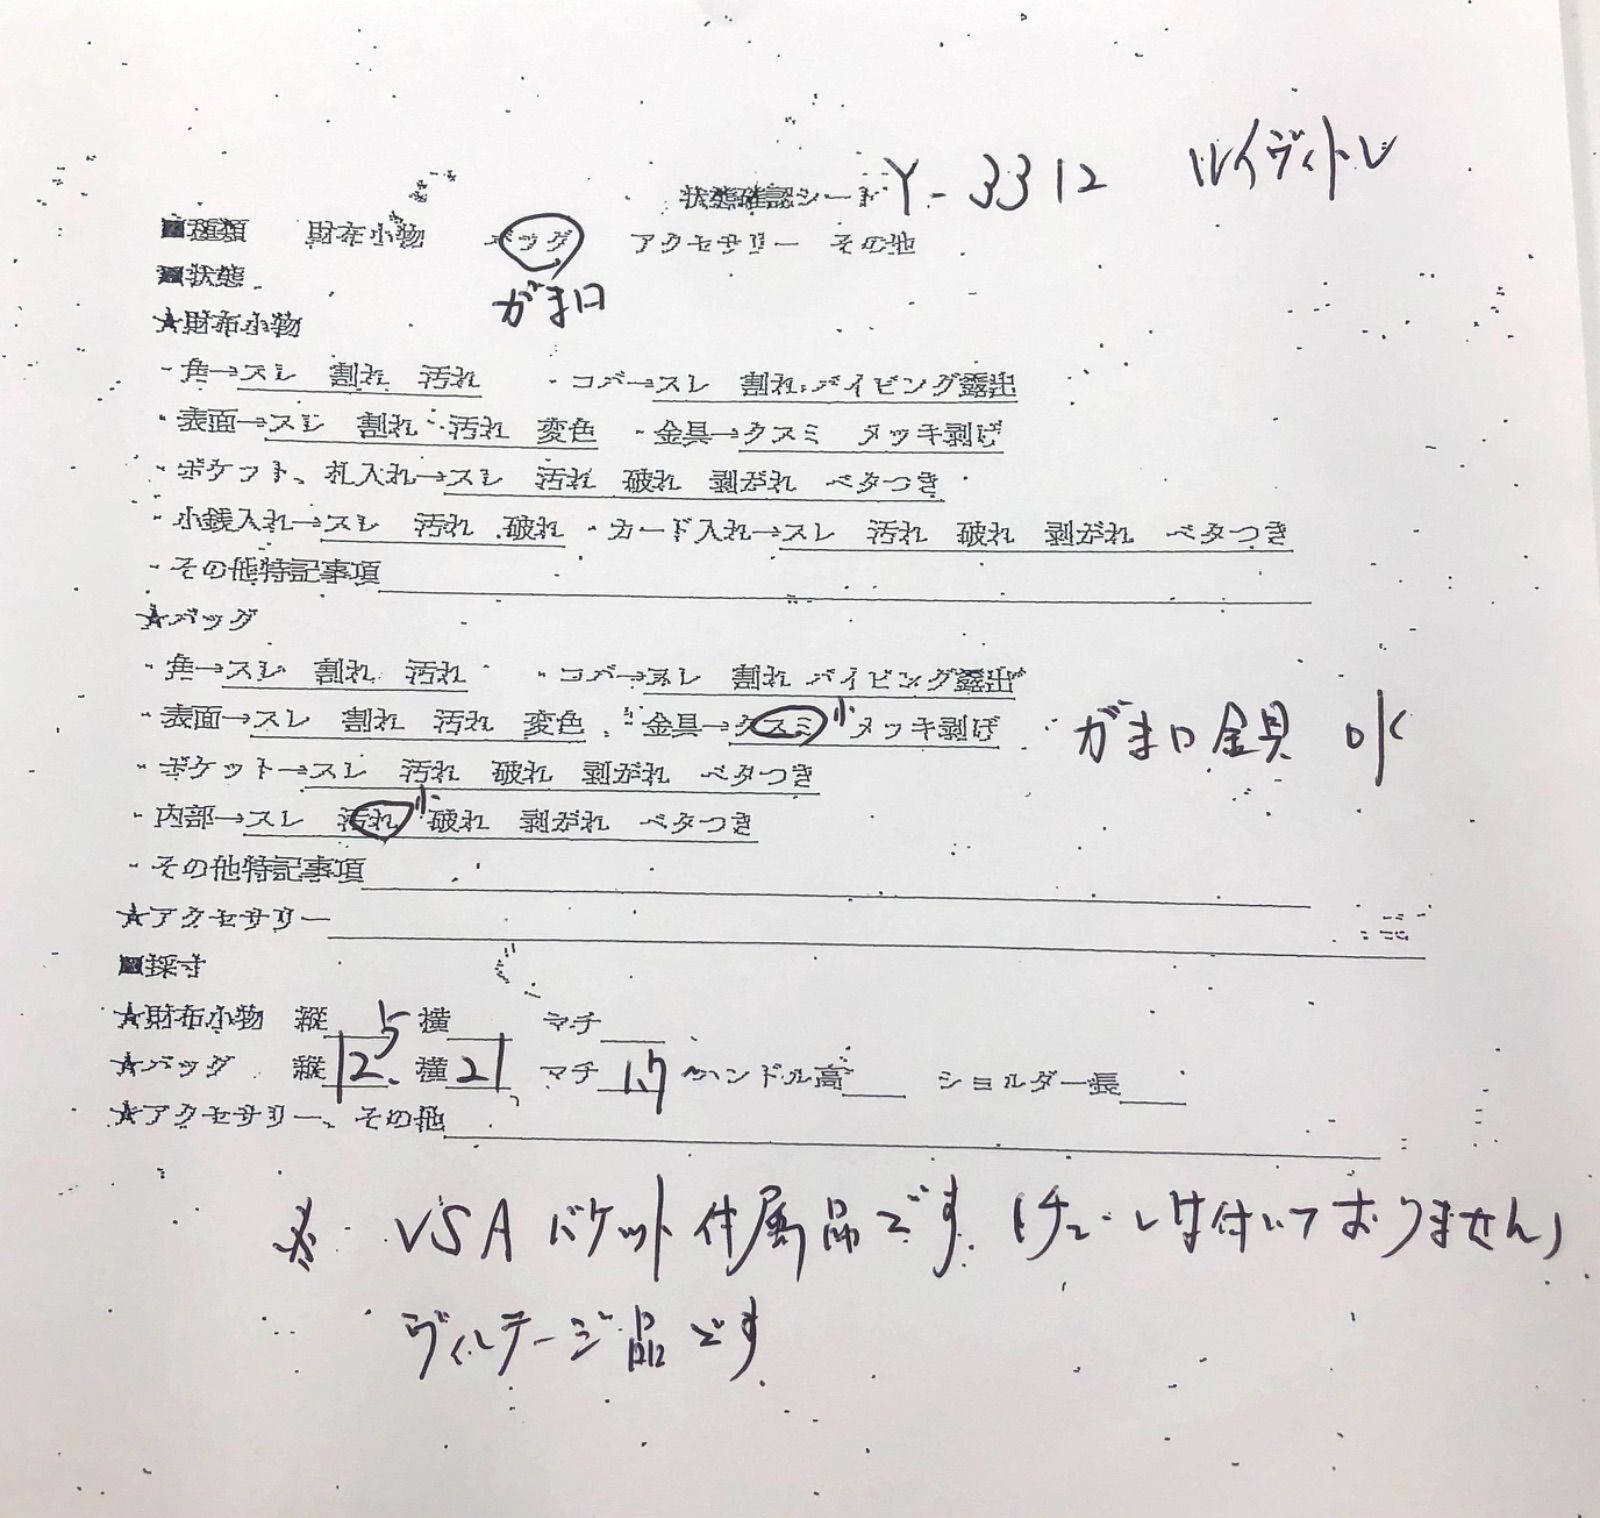 状態確認シート Y-3312 ルイヴィトン
■種類 財布小物 バッグ アクセサリー その他
■状態 がま口
★財布小物
・角→スレ 割れ 汚れ ・コバ→スレ 割れ パイピング露出
・表面→スレ 割れ 汚れ 変色 ・金具→クスミ メッキ剥げ
・ポケット、札入れ→スレ 汚れ 破れ 剥がれ ベタつき
・小銭入れ→スレ 汚れ 破れ ・カード入れ→スレ 汚れ 破れ 剥がれ ベタつき
・その他特記事項
★バッグ
・角→スレ 割れ 汚れ ・コバ→スレ 割れ パイピング露出
・表面→スレ 割れ 汚れ 変色 ・金具→クスミ 小 メッキ剥げ がま口金具 OK
・ポケット→スレ 汚れ 破れ 剥がれ ベタつき
・内部→スレ 汚れ 小 破れ 剥がれ ベタつき
・その他特記事項
★アクセサリー
■採寸
★財布小物 縦 横 マチ
★バッグ 縦12.5 横21 マチ1.7 ハンドル高 ショルダー長
★アクセサリー、その他
※ USA バケット付属品です。(チェーンは付いておりません)
ヴィンテージ品です